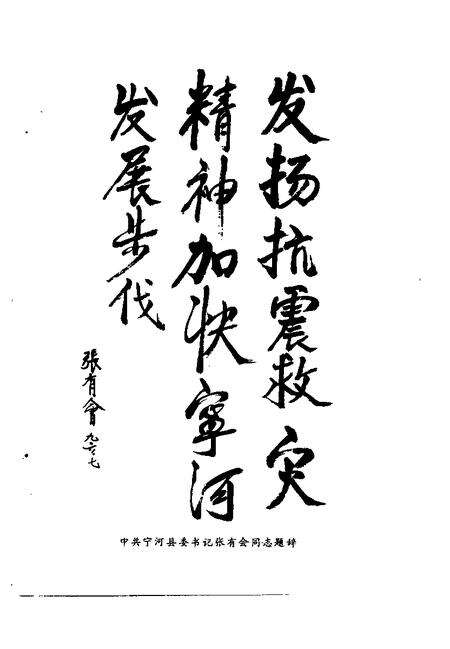 发扬抗震救灾
精神加快寧河
发展步伐
張有會
九六七
中共宁河县委书记张有会同志题辞